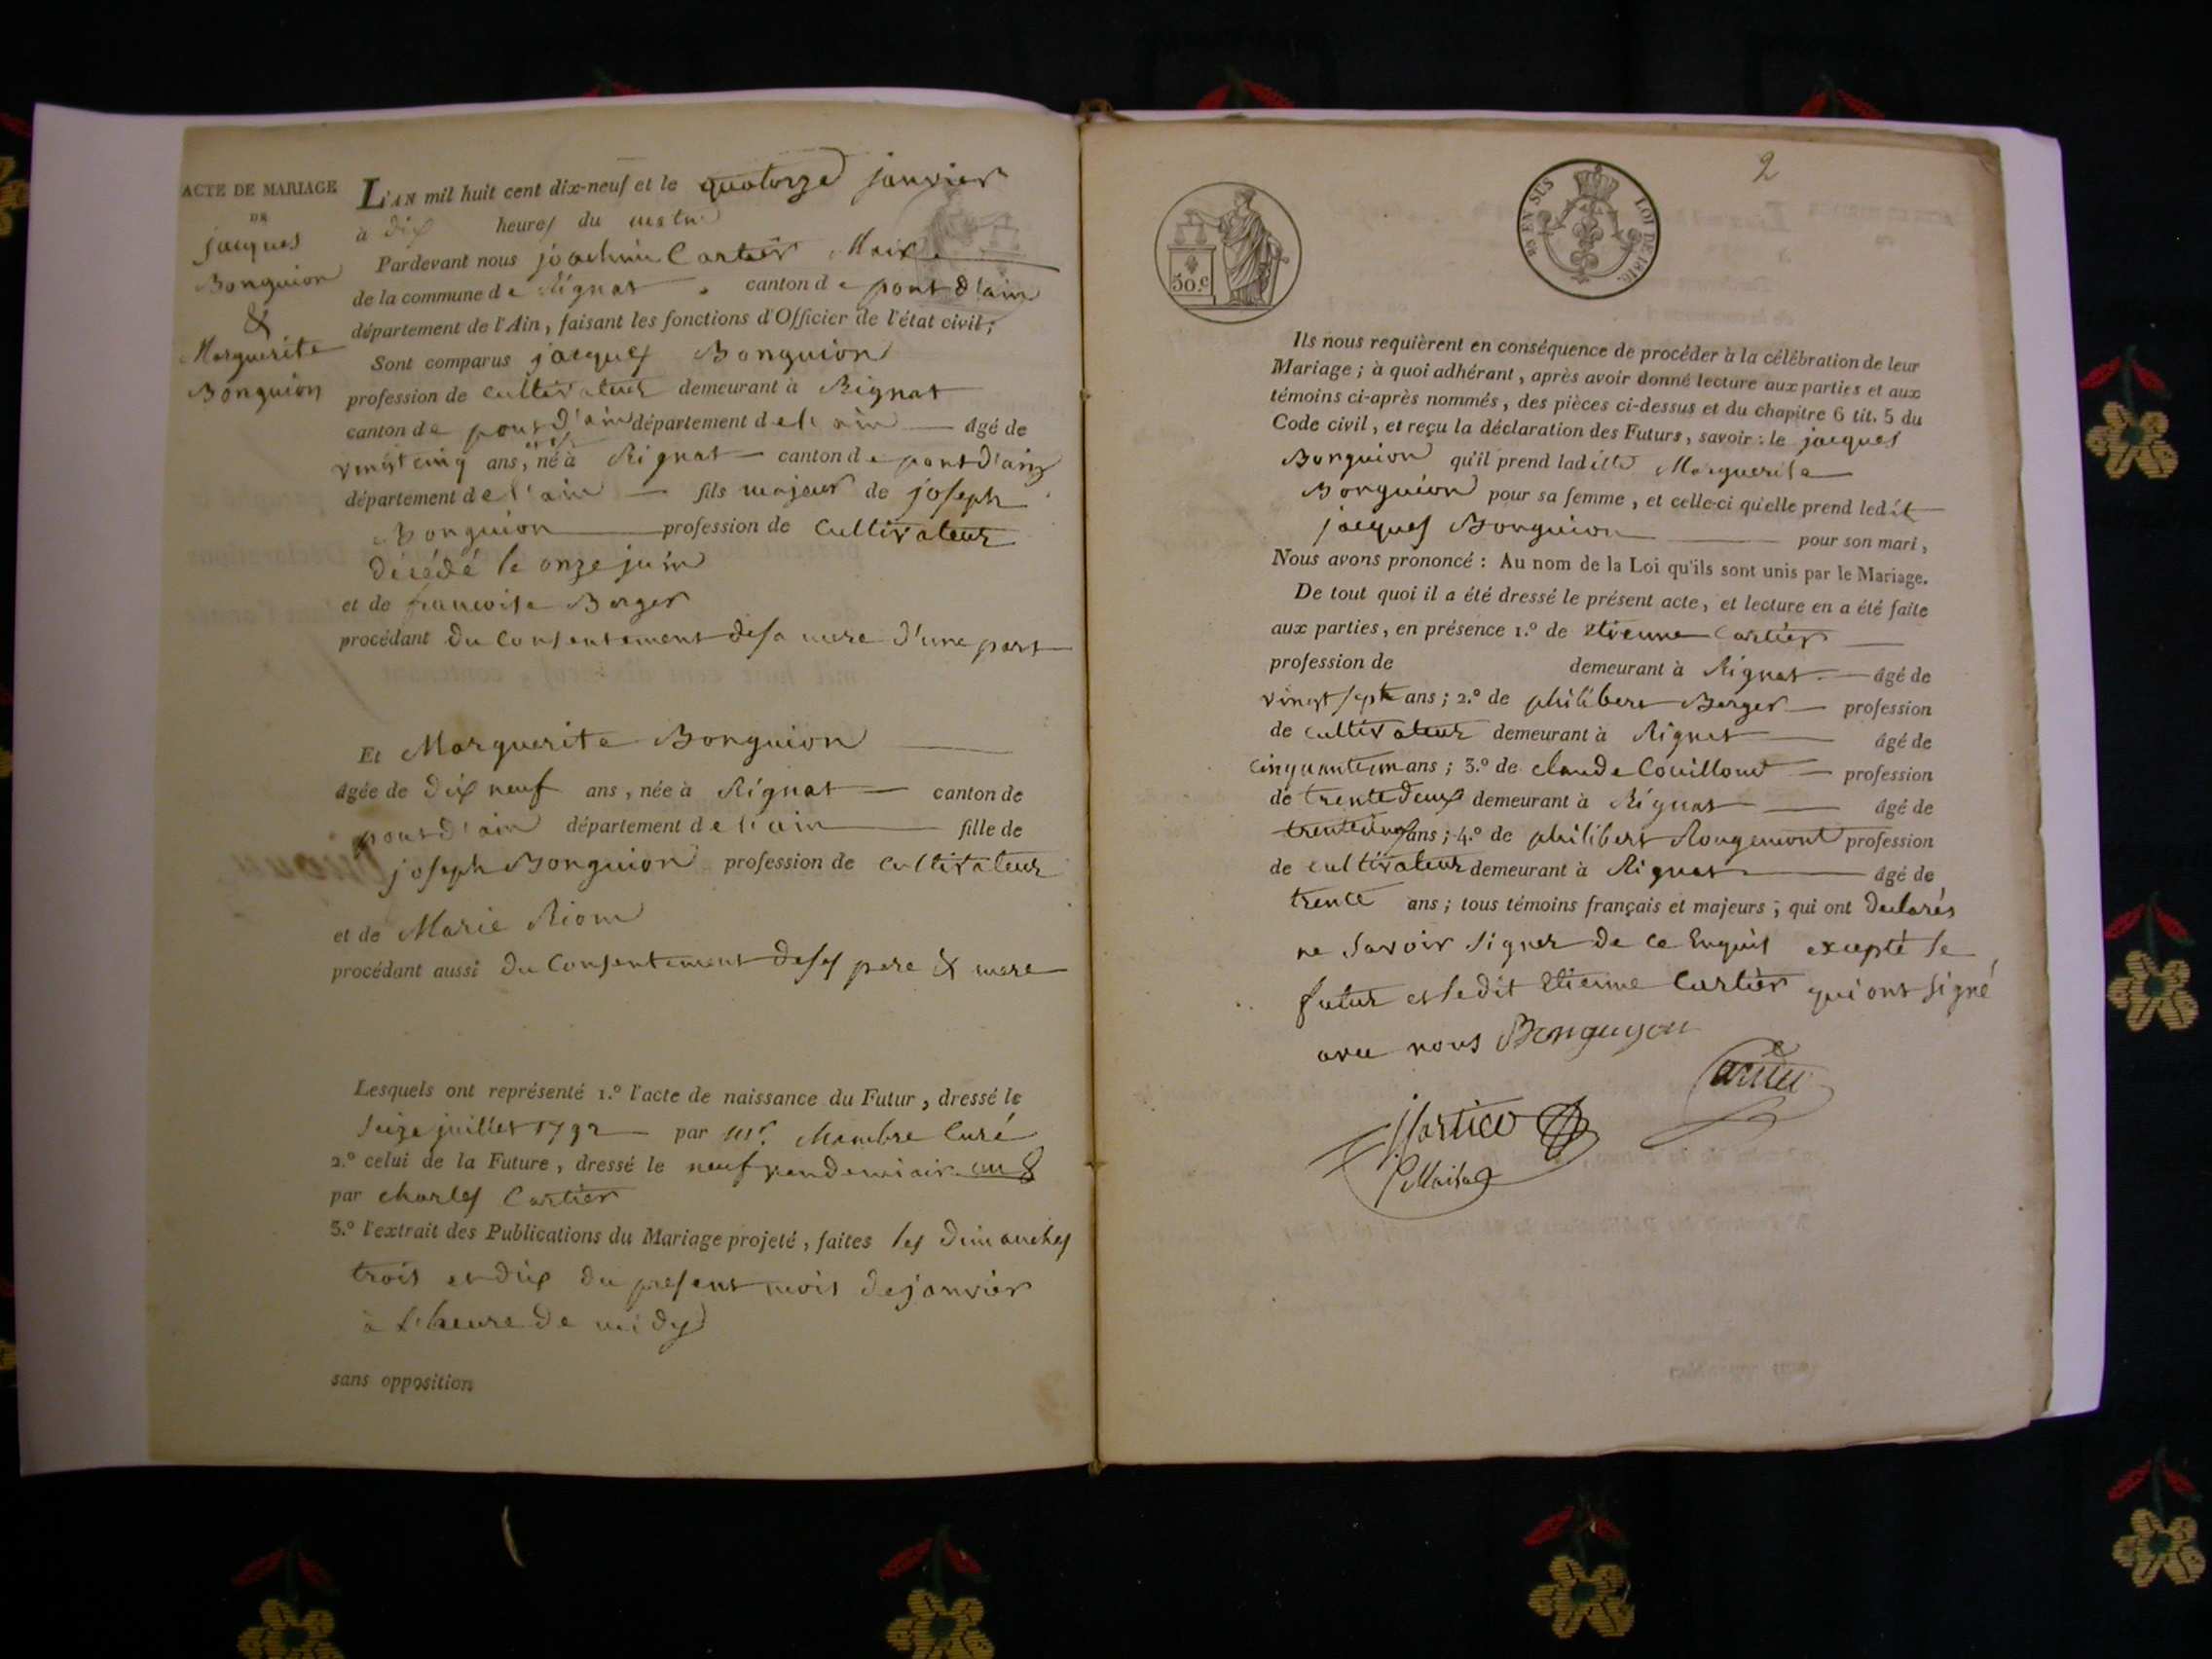 ACTE DE MARIAGE
DE
jacques
Bonguion
&
Marguerite
Bonguion
L'AN mil huit cent dix-neuf et le quatorze janvier
à dix heures du matin
Pardevant nous joachim Cartier Maire
de la commune de Rignat canton de pont d'ain
département de l'Ain, faisant les fonctions d'Officier de l'état civil;
Sont comparus jacques Bonguion
profession de cultivateur demeurant à Rignat
canton de pont d'ain département de l'ain âgé de
vingt cinq ans, né à Rignat canton de pont d'ain
département de l'ain fils majeur de joseph
Bonguion profession de Cultivateur
décédé le onze juin
et de francoise Berger
procédant du Consentement de sa mere d'une part
Et Marguerite Bonguion
âgée de dix neuf ans, née à Rignat canton de
pont d'ain département de l'ain fille de
joseph Bonguion profession de Cultivateur
et de Marie Riom
procédant aussi du Consentement de ses pere & mere
Lesquels ont représenté 1.° l'acte de naissance du Futur, dressé le
seize juillet 1792 par Mr. Mambre Curé
2.° celui de la Future, dressé le neuf vendemiair an 8
par charles Cartier
3.° l'extrait des Publications du Mariage projeté, faites les dimanches
trois et dix du present mois de janvier
à l'heure de midy
sans opposition
2
30.c
EN SUS LOI DE 1816.
Ils nous requièrent en conséquence de procéder à la célébration de leur
Mariage; à quoi adhérant, après avoir donné lecture aux parties et aux
témoins ci-après nommés, des pièces ci-dessus et du chapitre 6 tit. 5 du
Code civil, et reçu la déclaration des Futurs, savoir: le jacques
Bonguion qu'il prend ladite Marguerite
Bonguion pour sa femme, et celle-ci qu'elle prend ledit
jacques Bonguion pour son mari,
Nous avons prononcé: Au nom de la Loi qu'ils sont unis par le Mariage.
De tout quoi il a été dressé le présent acte, et lecture en a été faite
aux parties, en présence 1.° de Etienne Cartier
profession de demeurant à Rignat âgé de
vingt sept ans; 2.° de philibert Berger profession
de cultivateur demeurant à Rignat âgé de
cinquante un ans; 3.° de claude Couilloud profession
de trente deux demeurant à Rignat âgé de
trente cinq ans; 4.° de philibert Rougemont profession
de cultivateur demeurant à Rignat âgé de
trente ans; tous témoins français et majeurs; qui ont declarés
ne savoir signer de ce Enquis excepté le
futur et ledit Etienne Cartier qui ont signé
avec nous Bonguyon
Cartier